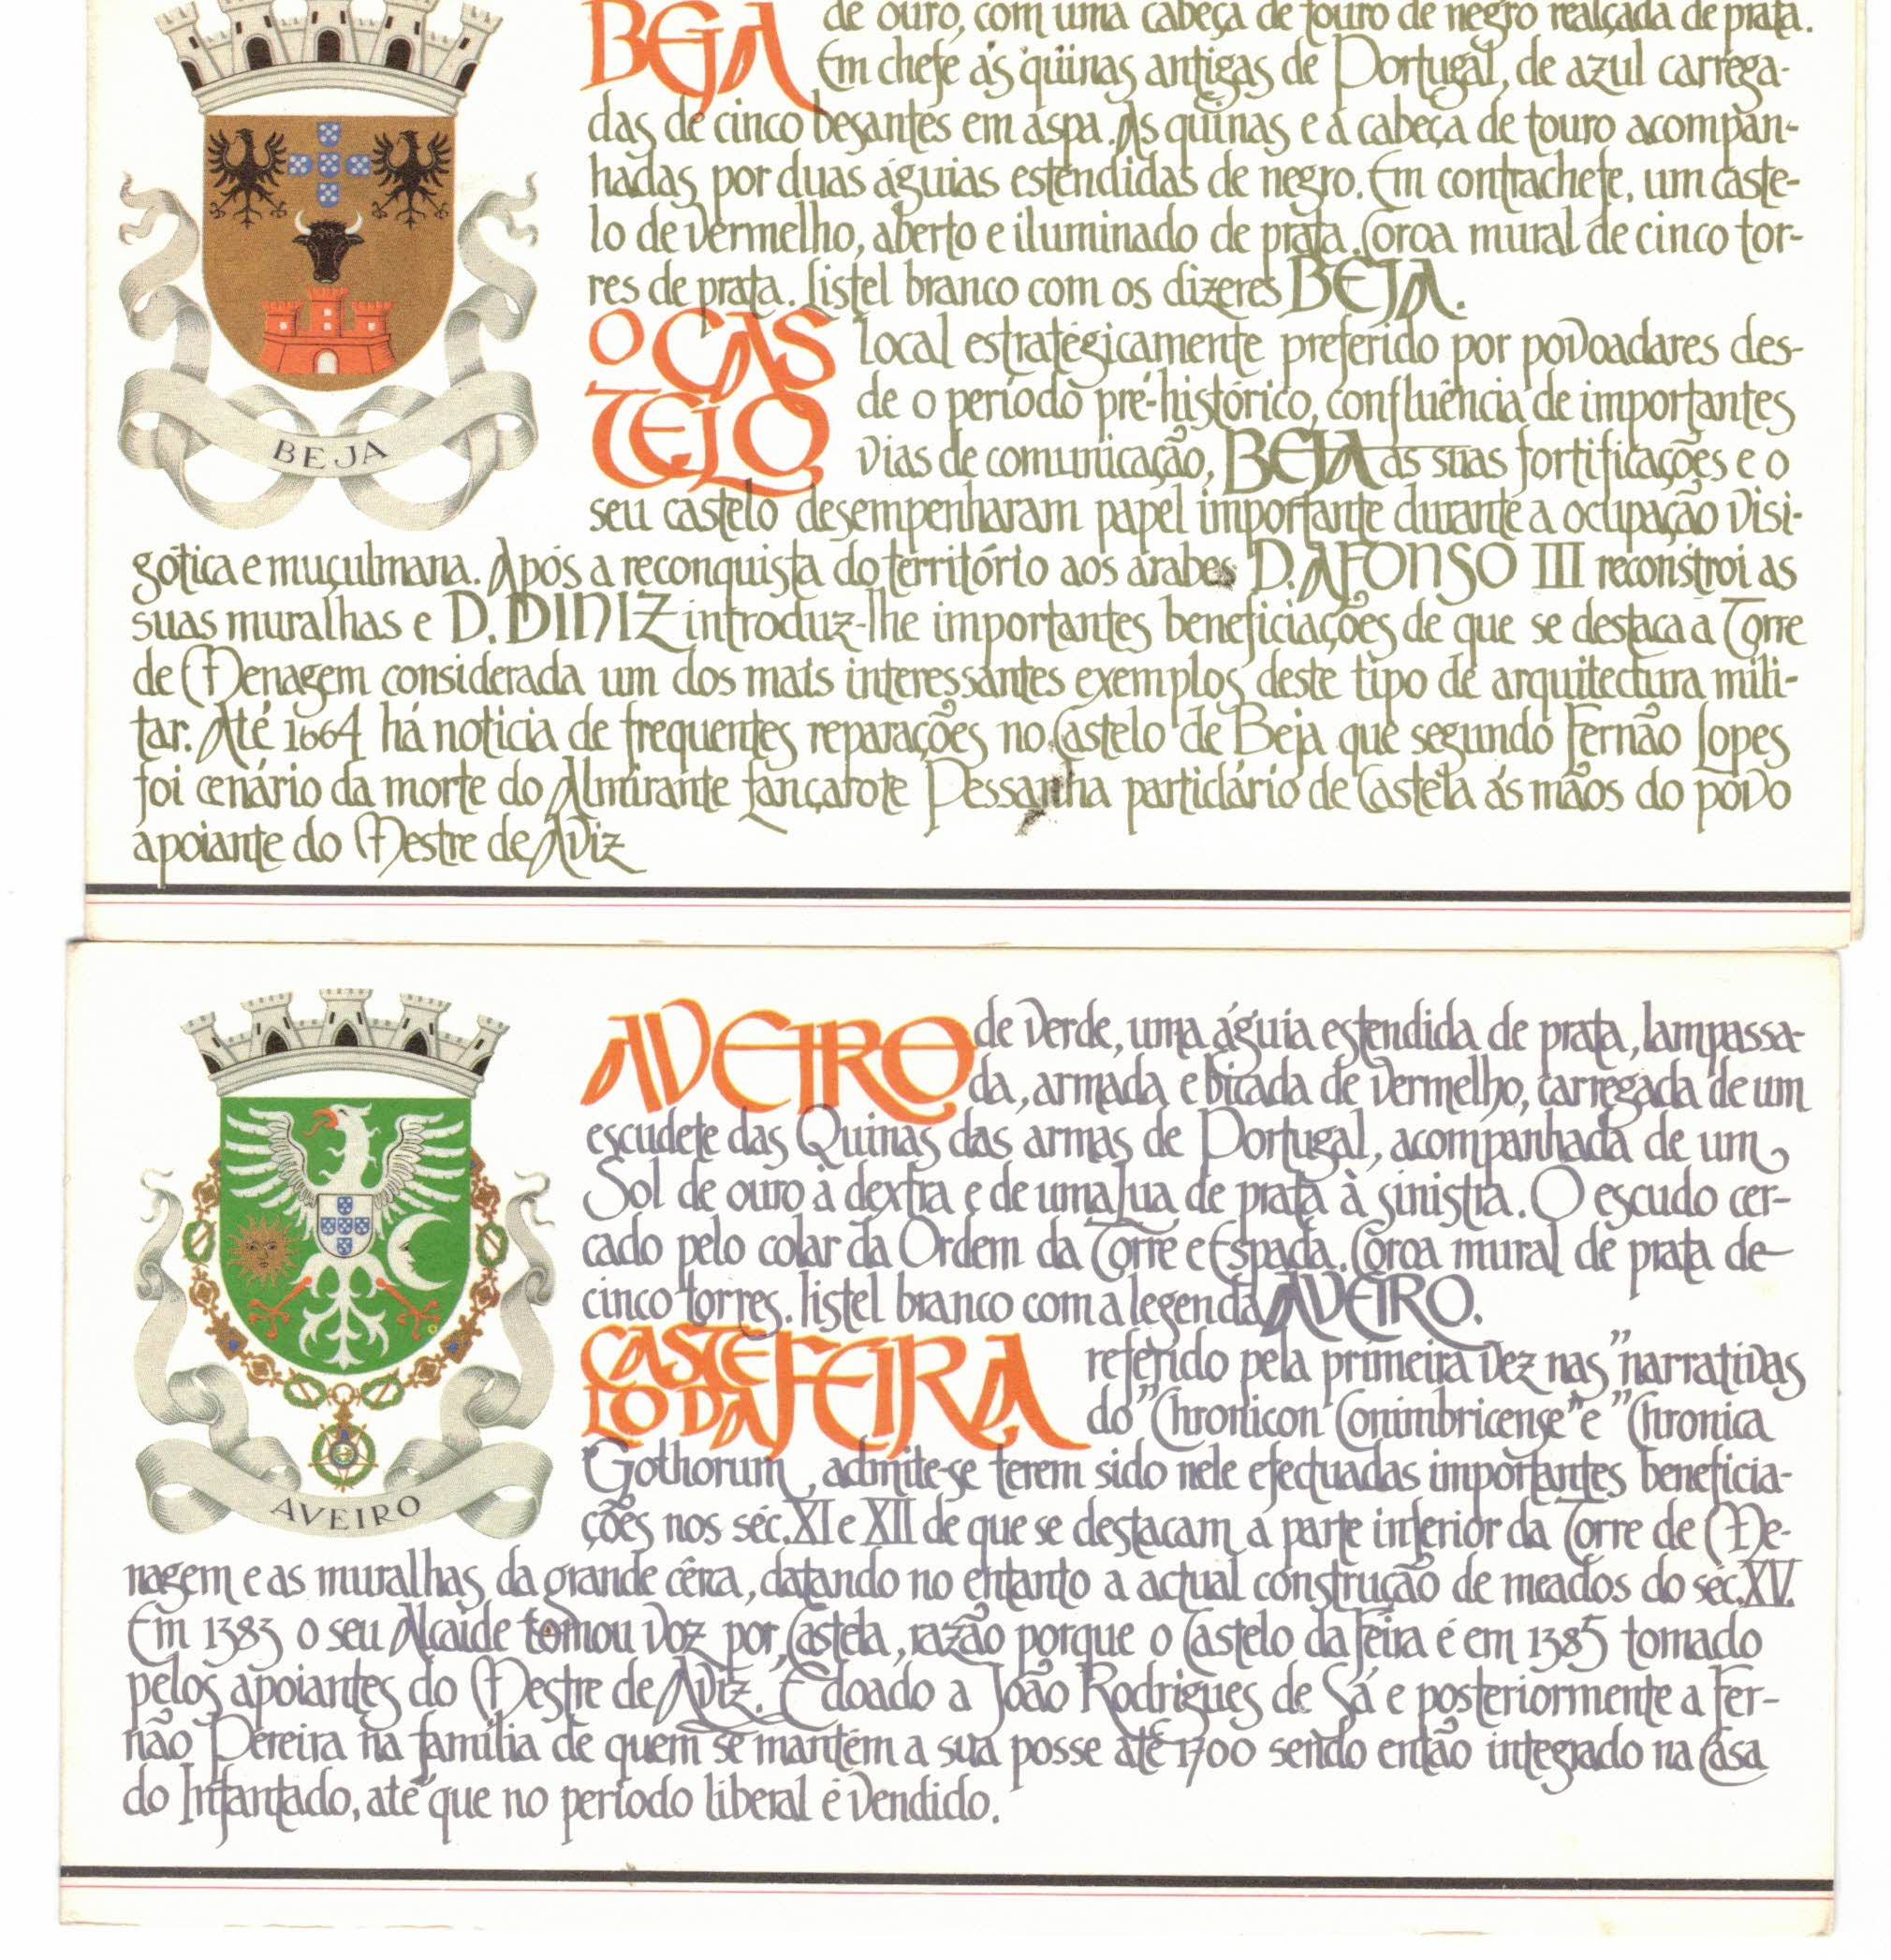 BEJA de ouro, com uma cabeça de touro de negro realçada de prata.
Em chefe ás quinas antigas de Portugal, de azul carrega-
das de cinco besantes em aspa. As quinas e a cabeça de touro acompan-
hadas por duas águias estendidas de negro. Em contrachefe, um caste-
lo de vermelho, aberto e iluminado de prata. Coroa mural de cinco tor-
res de prata. Listel branco com os dizeres BEJA.
BEJA
O CAS
TELO
Local estratégicamente preferido por povoadares des-
de o período pré-histórico, confluência de importantes
vias de comunicação, BEJA as suas fortificações e o
seu castelo desempenharam papel importante durante a ocupação visi-
gótica e muçulmana. Após a reconquista do território aos árabes D. AFONSO III reconstroi as
suas muralhas e D. DINIZ introduz-lhe importantes beneficiações de que se destaca a Torre
de Menagem considerada um dos mais interessantes exemplos deste tipo de arquitectura mili-
tar. Até 1664 há noticia de frequentes reparações no Castelo de Beja que segundo Fernão Lopes
foi cenário da morte do Almirante Lançarote Pessanha partidário de Castela ás mãos do povo
apoiante do Mestre de Aviz
AVEIRO de verde, uma águia estendida de prata, lampassa-
da, armada e bicada de vermelho, carregada de um
escudete das Quinas das armas de Portugal, acompanhada de um
Sol de ouro à dextra e de uma Lua de prata à sinistra. O escudo cer-
cado pelo colar da Ordem da Torre e Espada. Coroa mural de prata de
cinco torres. Listel branco com a legenda AVEIRO.
CASTE
LO DA FEIRA
referido pela primeira vez nas "narrativas
do "Chronicon Conimbricense" e "Chronica
Gothorum, admite-se terem sido nele efectuadas importantes beneficia-
ções nos séc. XI e XII de que se destacam a parte inferior da Torre de Me-
nagem e as muralhas da grande cêrca, datando no entanto a actual construção de meados do séc. XV.
Em 1383 o seu Alcaide tomou voz por Castela, razão porque o Castelo da Feira é em 1385 tomado
pelos apoiantes do Mestre de Aviz. É doado a João Rodrigues de Sá e posteriormente a Fer-
não Pereira na família de quem se mantém a sua posse até 1700 sendo então integrado na Casa
do Infantado, até que no período liberal é vendido.
AVEIRO